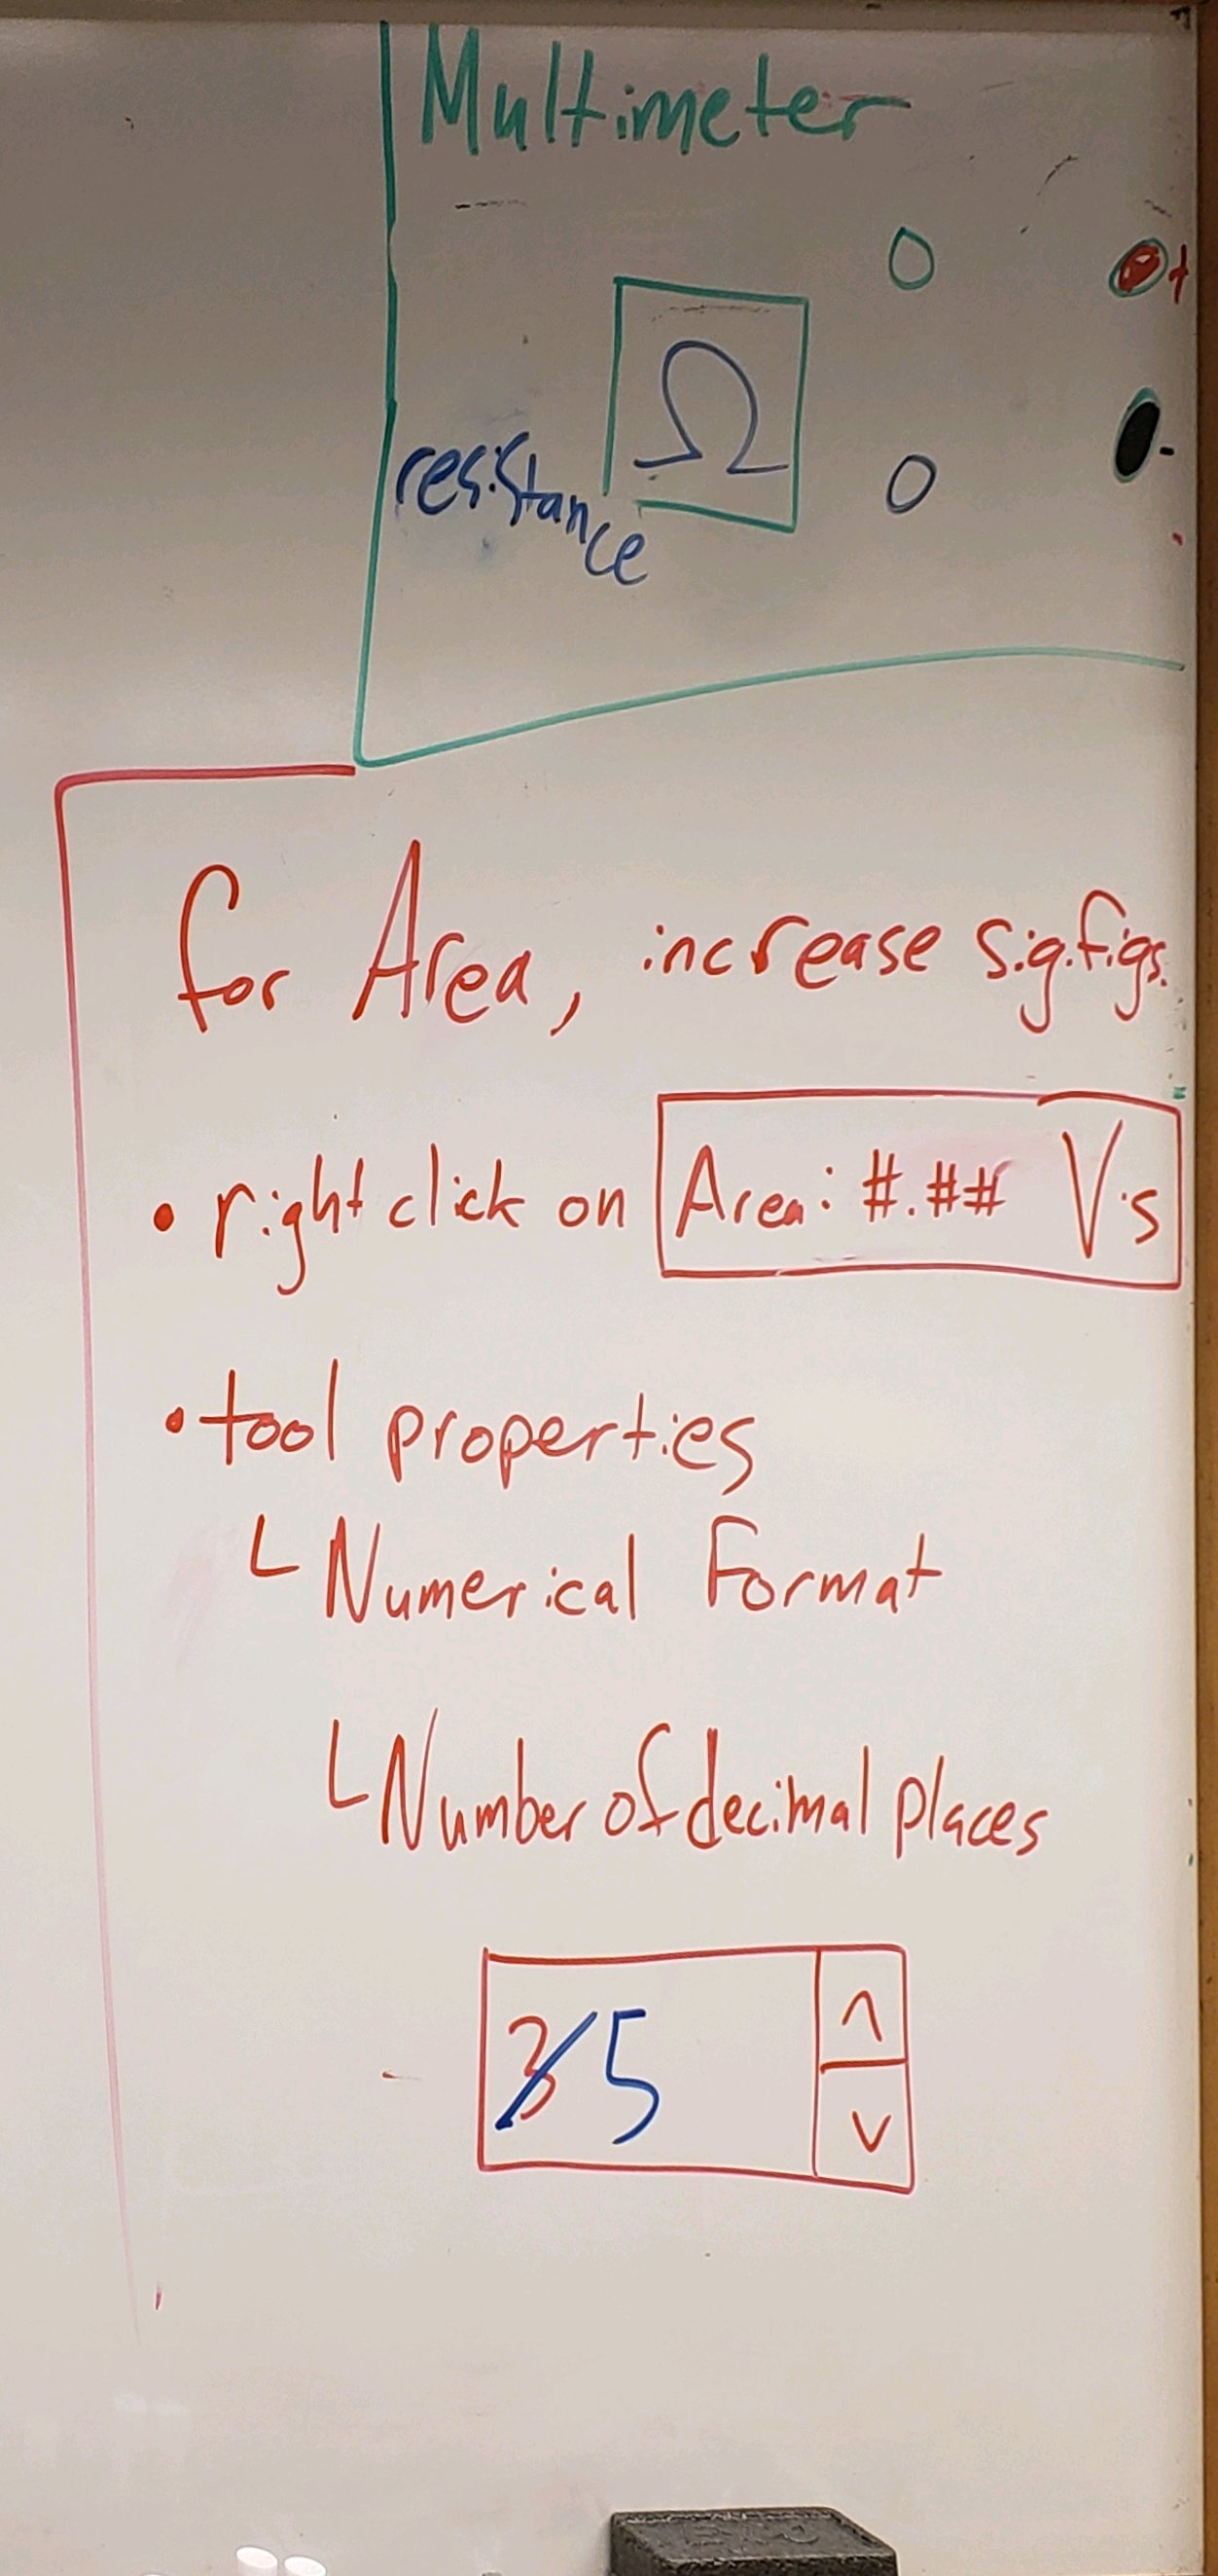 Multimeter
+
Ω
-
resistance
for Area, increase sig.figs.
• right click on Area: #.## V·s
• tool properties
└ Numerical Format
└ Number of decimal places
3 5 ^
v